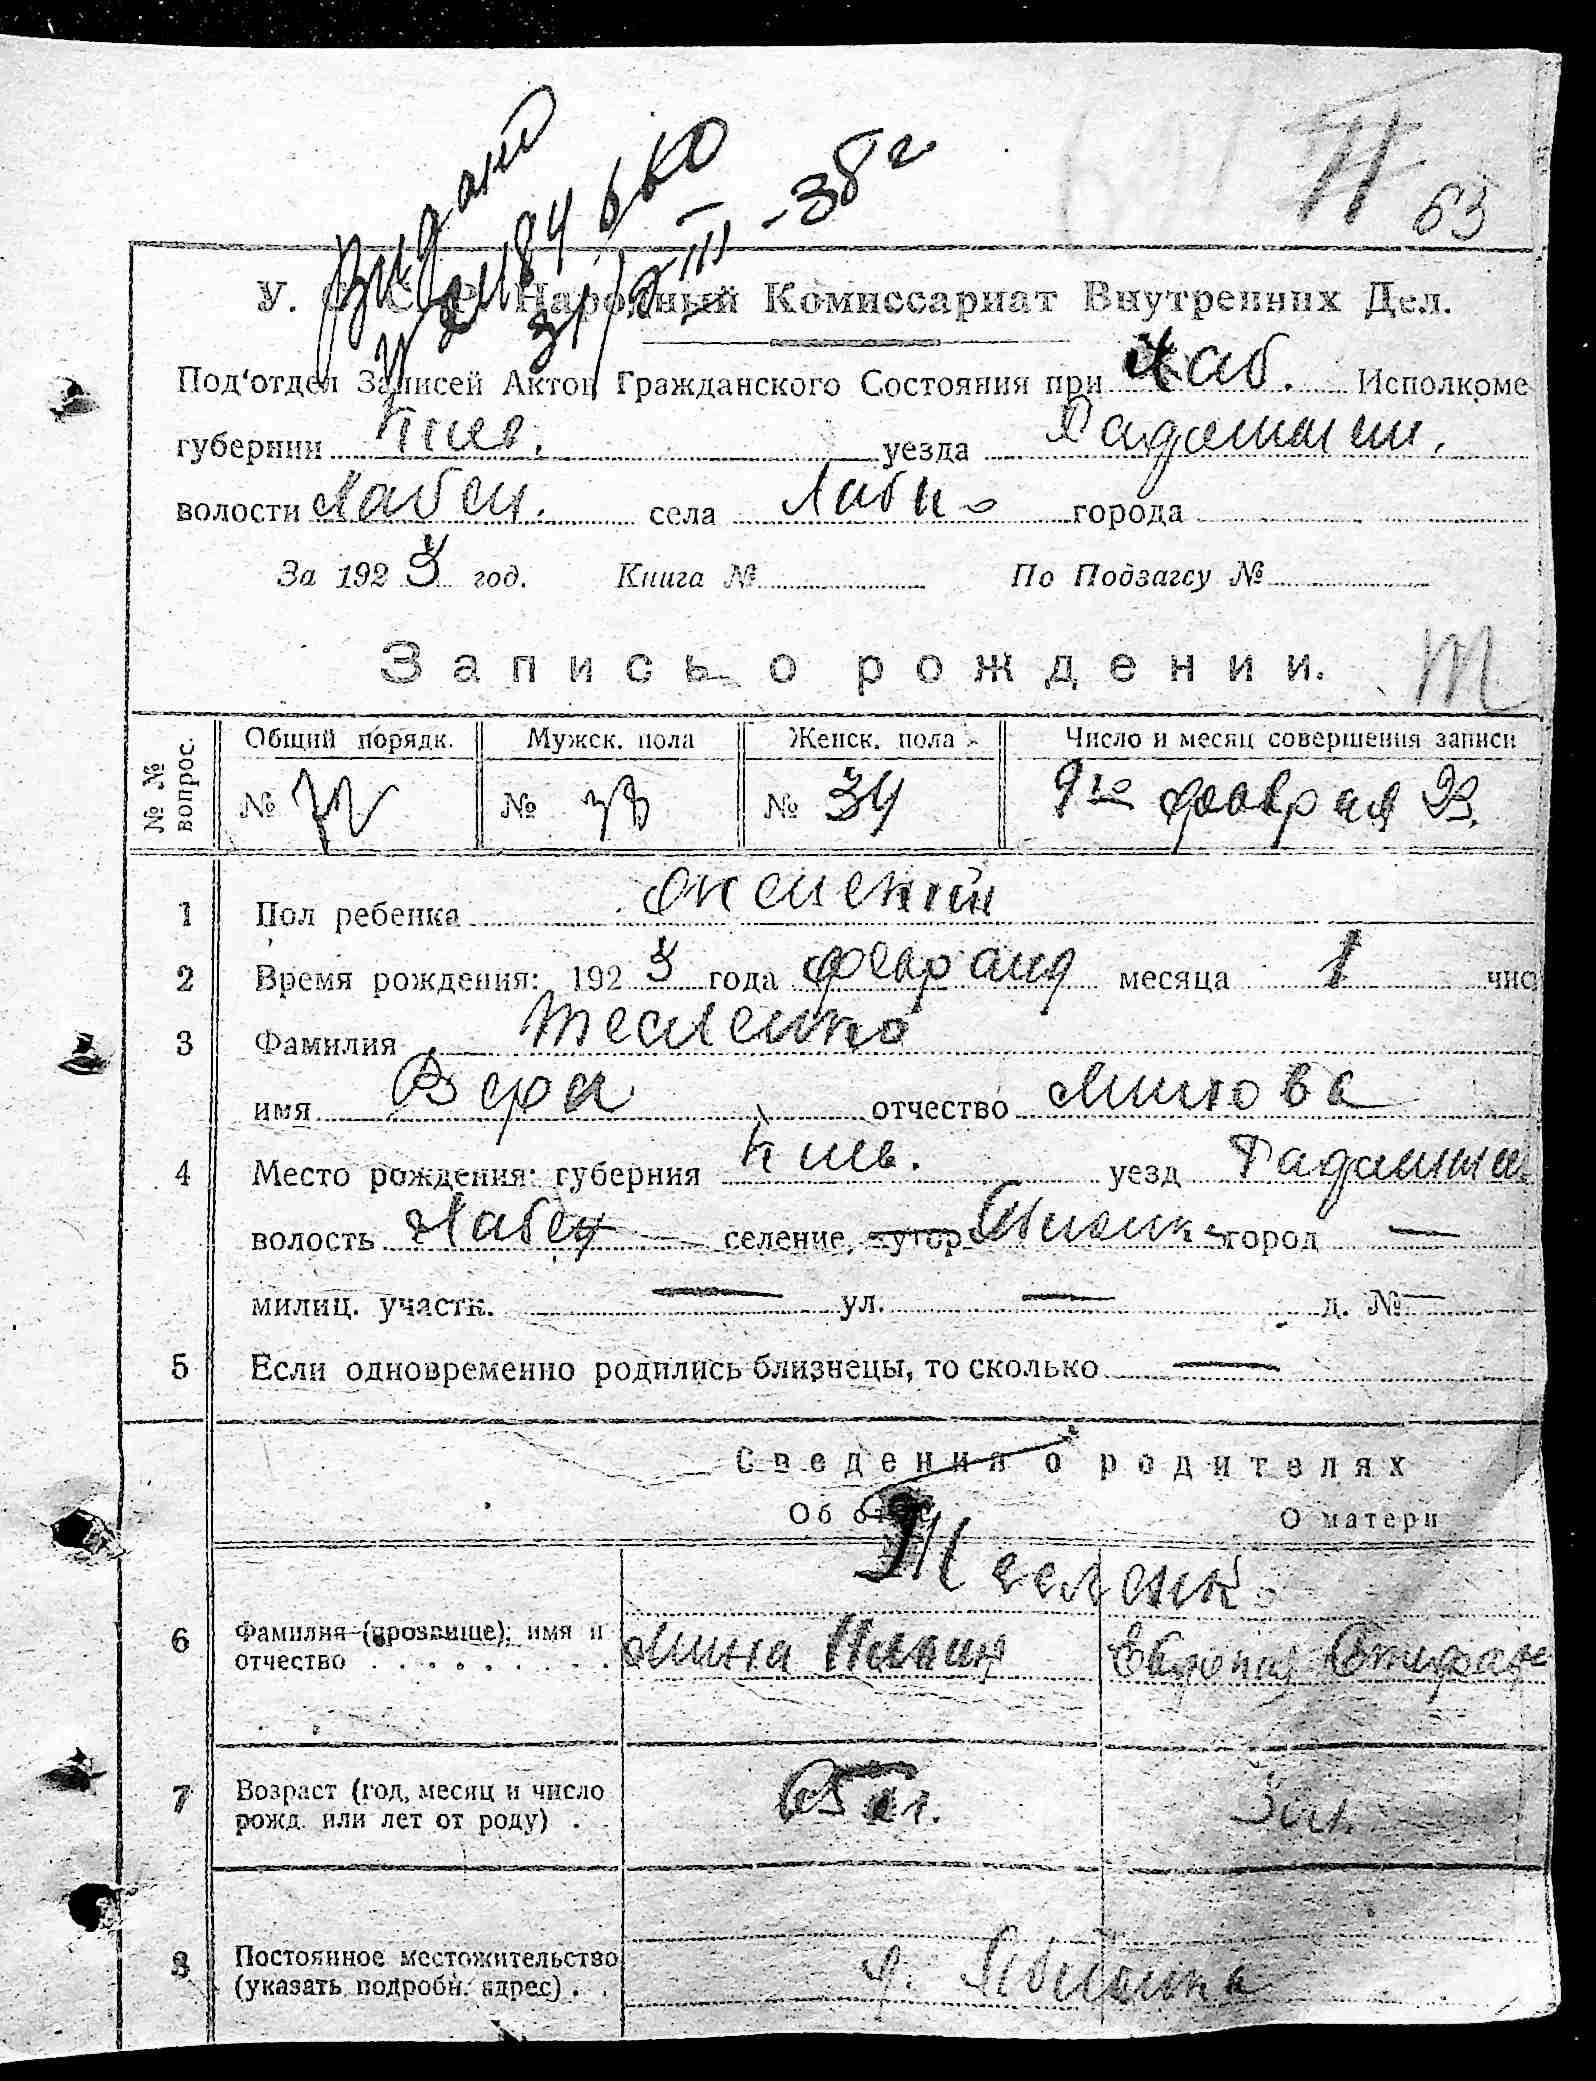 63
У. С. С. Р. Народный Комиссариат Внутренних Дел.
Под'отдел Записей Актов Гражданского Состояния при Хаб. Исполкоме
губернии Киев. уезда Радомышл.
волости Хабен. села Хабн город​а
За 1923 год. Книга № По Подзагсу №
Запись о рождении.
№ № вопрос. Общий порядк. Мужск. пола Женск. пола Число и месяц совершения записи
№ 72 № 38 № 34 9го февраля 23.
1 Пол ребенка женский
2 Время рождения: 1923 года февраля месяца 1 чис
3 Фамилия Тесленко
имя Вера отчество Минова
4 Место рождения: губерния Киев. уезд Радомышл.
волость Хабен селение, хутор город —
милиц. участк. — ул. — д. № —
5 Если одновременно родились близнецы, то сколько —
Сведения о родителях
Об отце О матери
Тесленко
6 Фамилия (прозвище), имя и
отчество Мина Евдокия
7 Возраст (год, месяц и число
рожд. или лет от роду) 65 л.
8 Постоянное местожительство
(указать подробн. адрес)